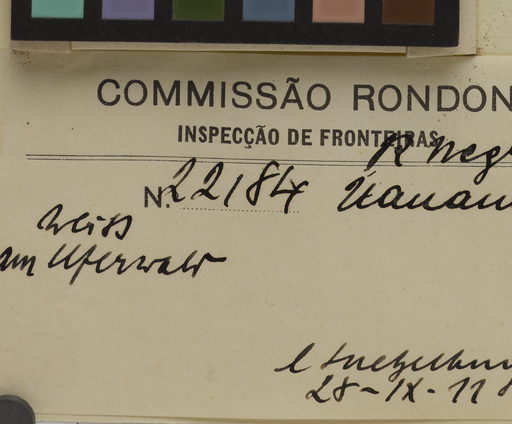 COMMISSÃO RONDON
INSPECÇÃO DE FRONTEIRAS
R Neg
N. 22184
weiss
am Uferwald
28-IX-11